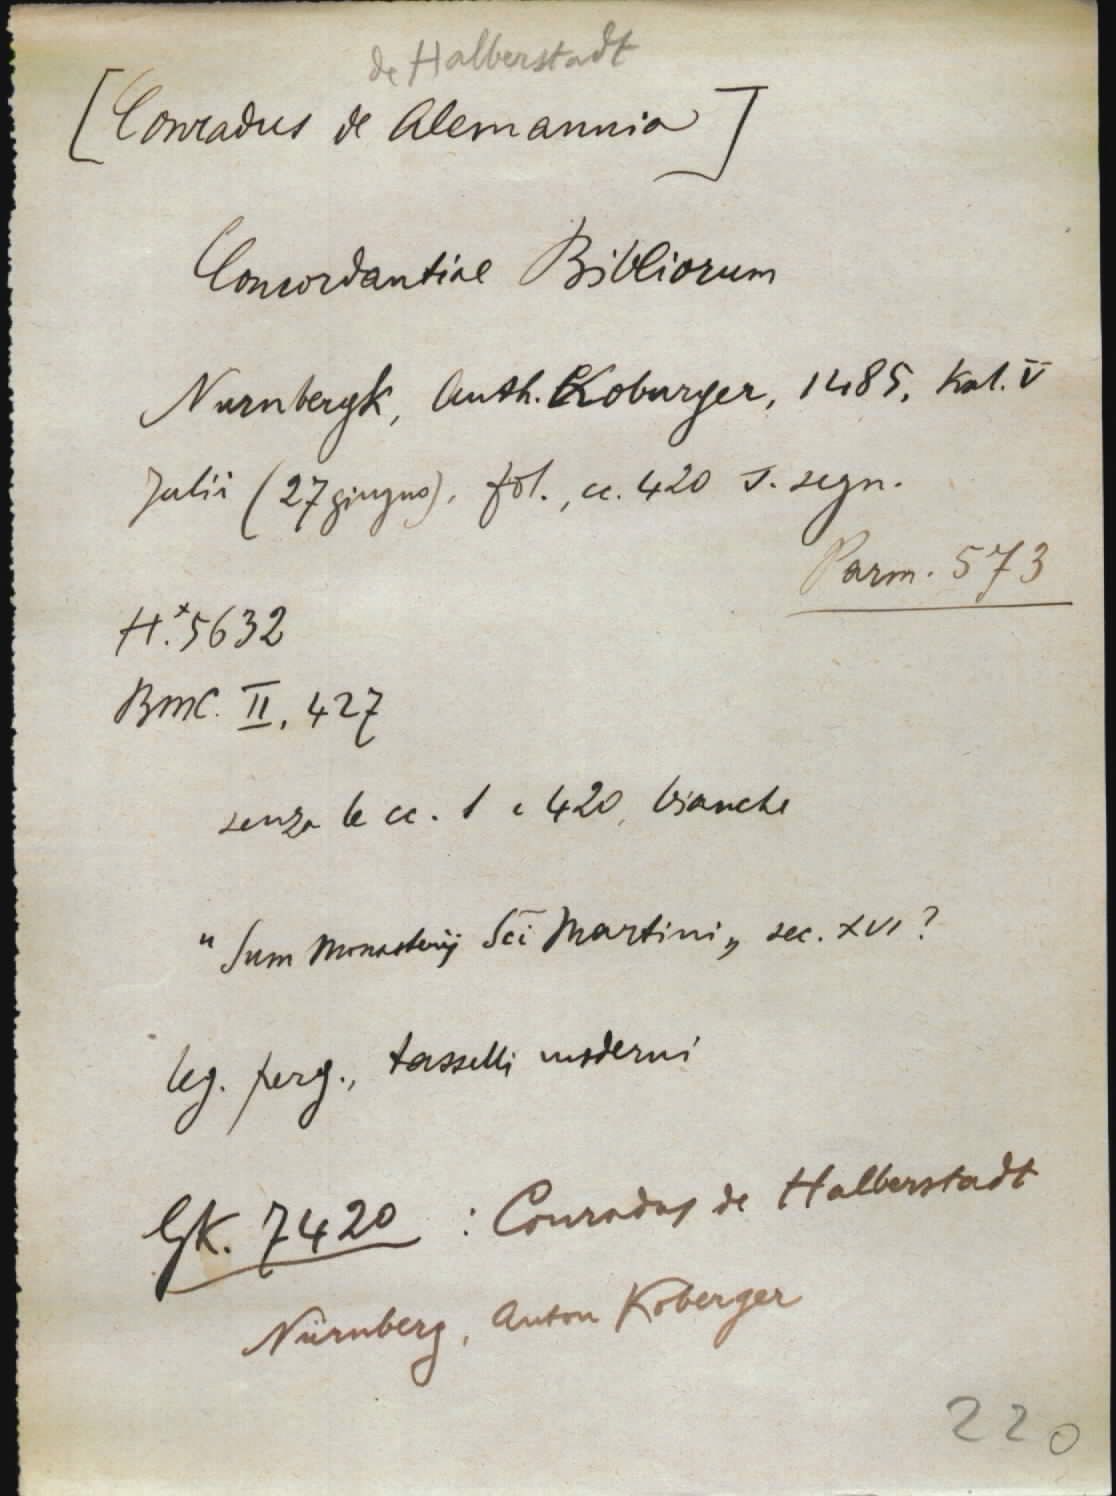 de Halberstadt
[Conradus de Alemannia]
Concordantiae Bibliorum
Nurnbergk, Anth. Koburger, 1485, Kal. V
Julii (27 giugno), fol., cc. 420 s. segn.
Parm. 573
H.*5632
BMC. II, 427
senza le cc. 1 e 420, bianche
"Sum Monasterij Sci̅ Martini„ sec. XVI?
leg. perg., tasselli moderni
GK. 7420 : Conradus de Halberstadt
Nürnberg, Anton Koberger
220